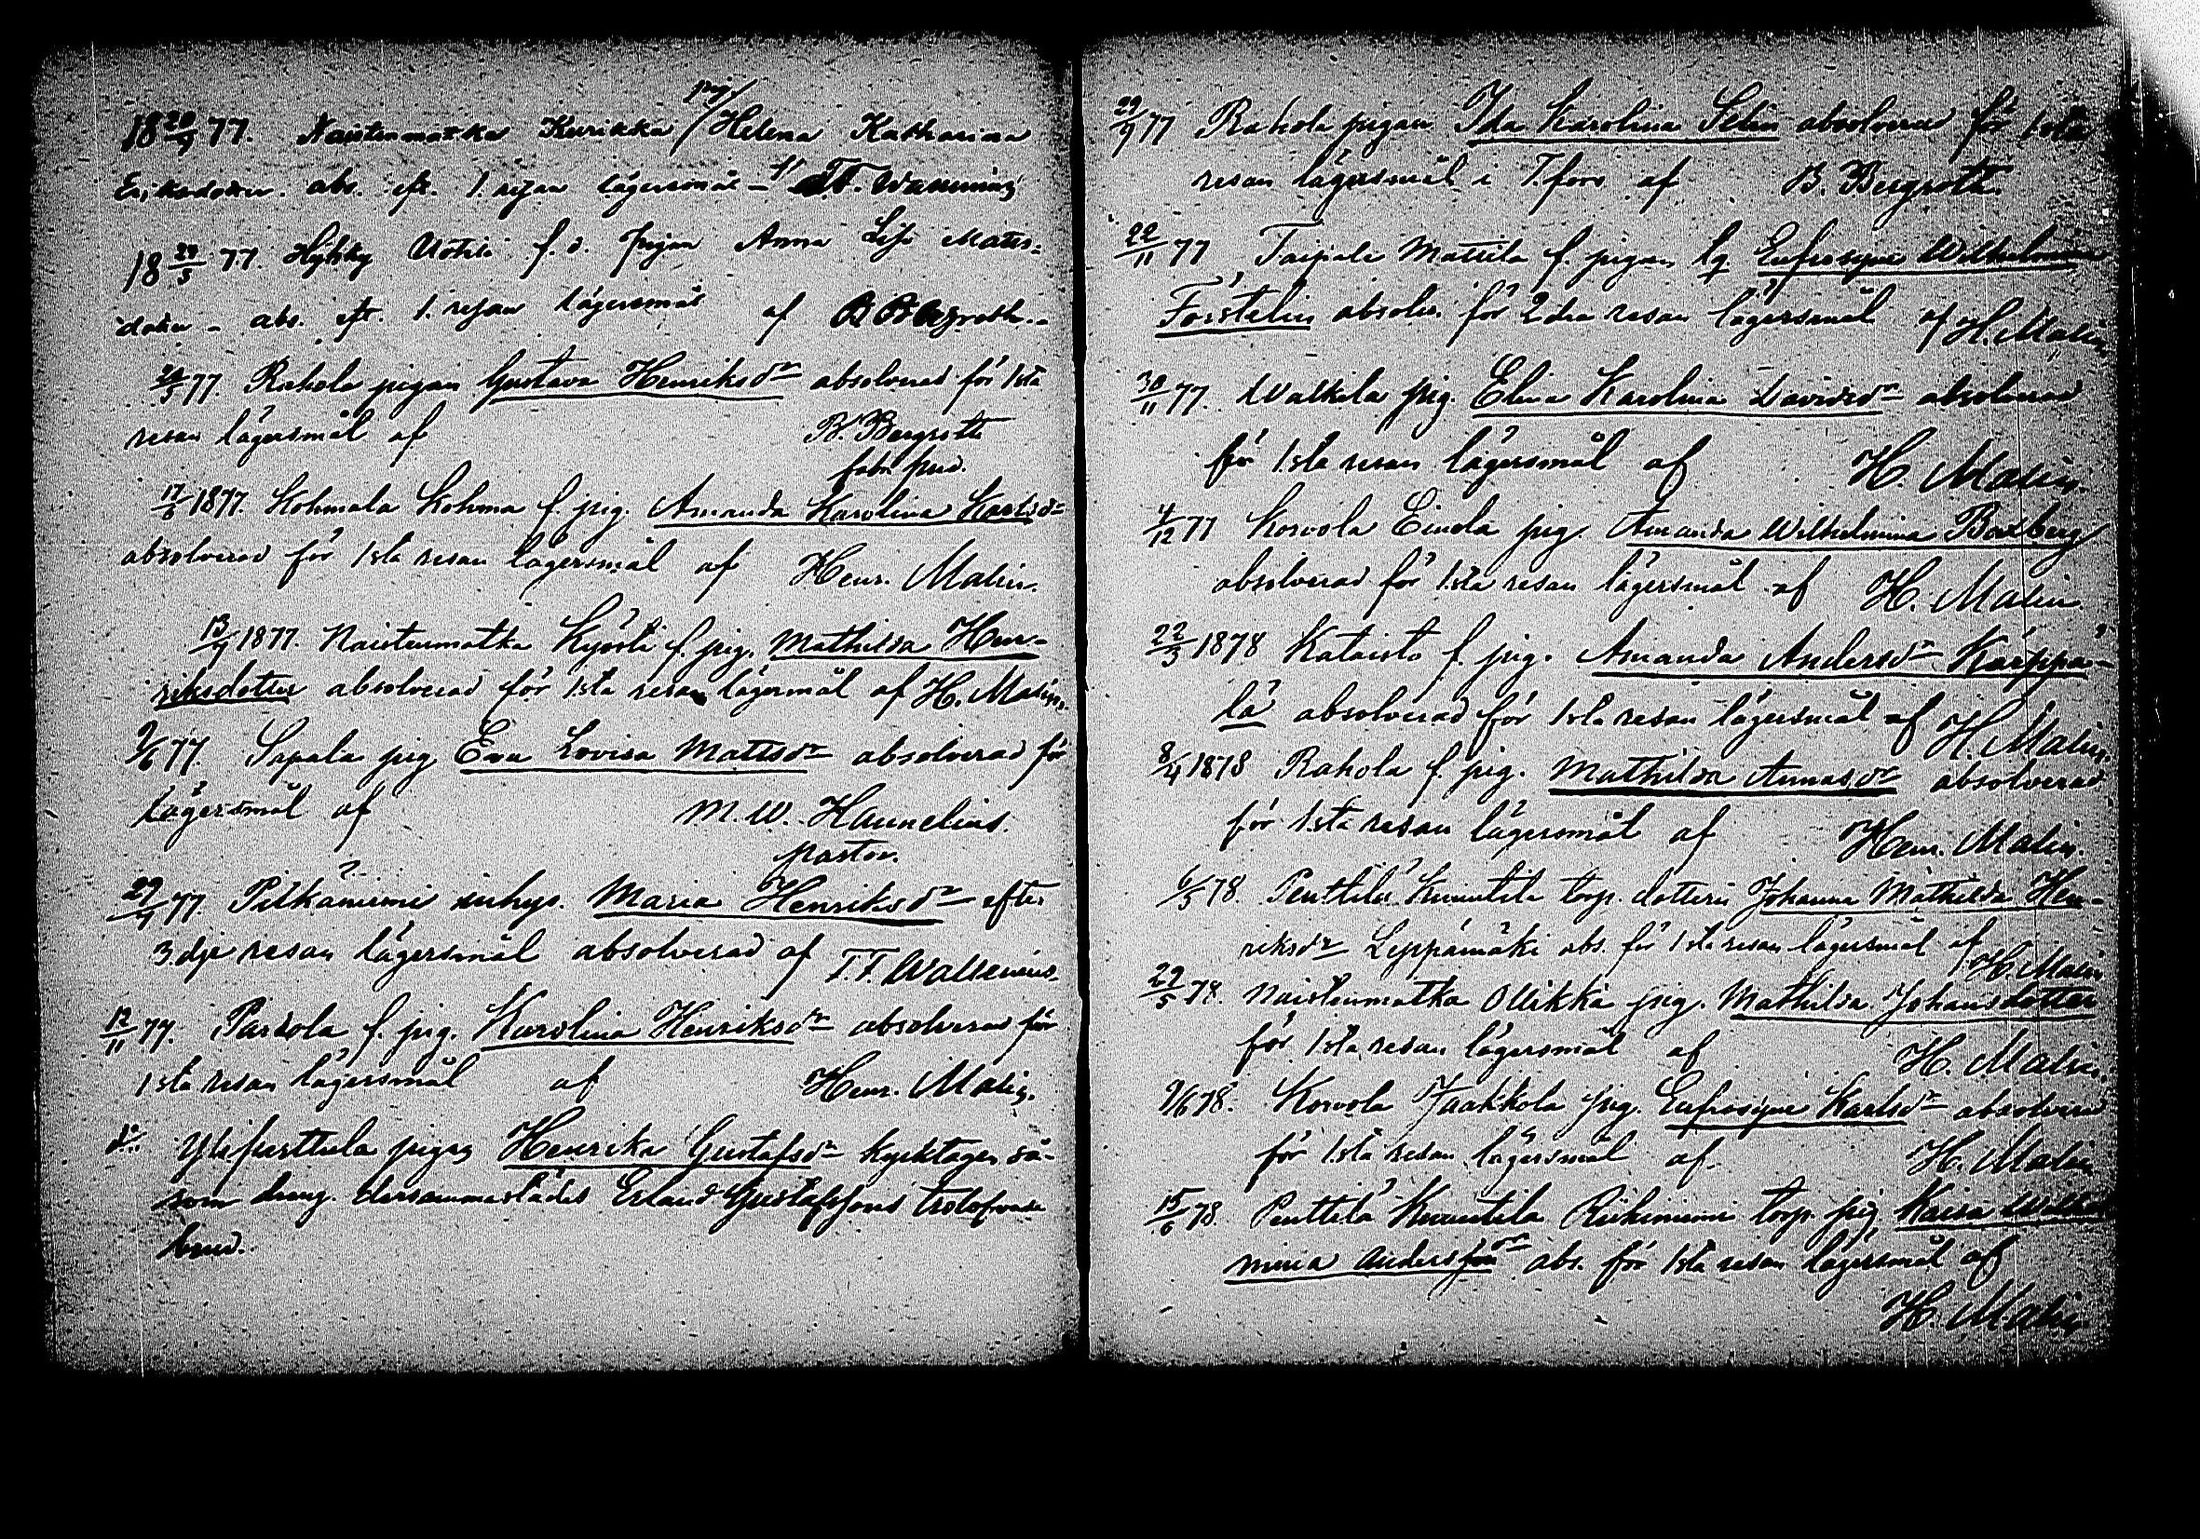 pig.
18 20/4 77. Naistenmatka Kurikka / Helena Katharina
Eriksdotter. abs. eft. 1. resan lägersmål af T.F. Wallenius
18 24/5 77. Hyhky Uotila f. d. pigan Anna Lisa Matts-
dotter abs. eft. 1. resan lägersmål af B. Bergroth.
24/5 77. Rahola pigan Gustava Henriksdr absolverad för 1sta
resan lägersmål af B. Bergroth
17/6 1877. Kohmala Kohma f. pig. Amanda Karolina Karlsdr
absolverad för 1sta resan lägersmål af Henr. Malin.
13/7 1877. Naistenmatka Kyösti f. pig. Mathilda Hen-
riksdotter absolverad för 1sta resan lägersmål af H. Malin.
9/6 77. Sapala pig Eva Lovisa Mattsdr absolverad för
lägersmål af M. W. Haunelius.
pastor.
29/4 77. Pitkäniemi inhys. Maria Henriksdr efter
3.dje resan lägersmål absolverad af T. F. Wallenius.
12/11 77. Parkola f. pig. Karolina Henriksdr absolverad för
1sta resan lägersmål af Henr. Malin.
do. Ylipirttula pigan Henrika Gustafsdr kyrktagen så-
som dräng. dersammastädes Erland Gustafssons trolofvade
brud.
29/9 77 Rahola pigan Ida Karolina Selin absolverad för 1sta
resan lägersmål i T.fors af B. Bergroth.
22/11 77 Taipale Mattila f. pigan Eufrosyne Wilhelmina
Förstelin absolv. för 2dra resan lägersmål af H. Malin
30/11 77. Walkila pig. Elina Karolina Davidsdr absolverad
för 1sta resan lägersmål af H. Malin.
4/12 77 Korvola Einola pig. Amanda Wilhelmina Boxberg
absolverad för 1sta resan lägersmål af H. Malin
22/3 1878 Kataisto f. pig. Amanda Andersdr Karppa-
la absolverad för 1sta resan lägersmål af H. Malin.
8/4 1878 Rahola f. pig. Mathilda Annasdr absolverad
för 1sta resan lägersmål af Henr. Malin.
6/5 78. Penttilä Knuutila torp. dottern Johanna Mathilda Hen-
riksdr Leppämäki abs. för 1sta resan lägersmål af H. Malin
29/5 78. Naistenmatka Ollikka pig. Mathilda Johansdotter
för 1sta resan lägersmål af H. Malin.
9/6 78. Korvola Jaakkola pig. Eufrosyne Karlsdr absolverad
för 1sta resan lägersmål af H. Malin
15/6 78. Penttilä Knuutila Riihiniemi torp. pig. Kaisa Wilhel
mina Andersson abs. för 1sta resan lägersmål af
H. Malin